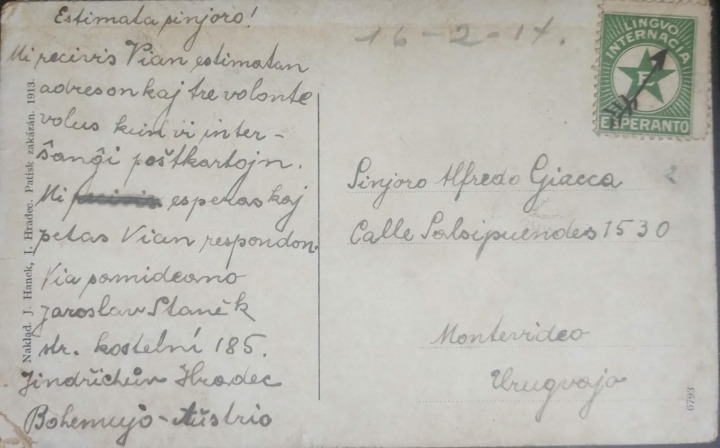 Estimata sinjoro!
Mi recivis Vian estimatan
adreson kaj tre volonte
volus kun vi inter-
ŝanĝi poŝtkartojn.
Mi esperas kaj
petas Vian respondon.
Via samideano
Jaroslav Staněk
str. kostelní 185.
Jindřichův Hradec
Bohemujo-Aŭstrio
Naklad. J. Hanek, J. Hradec. Patisk zakázán. 1913.
16-2-14.
LINGVO
INTERNACIA
E
ESPERANTO
Sinjoro Alfredo Giacca
Calle Salsipuendes 1530
Montevideo
Urugvajo
6793